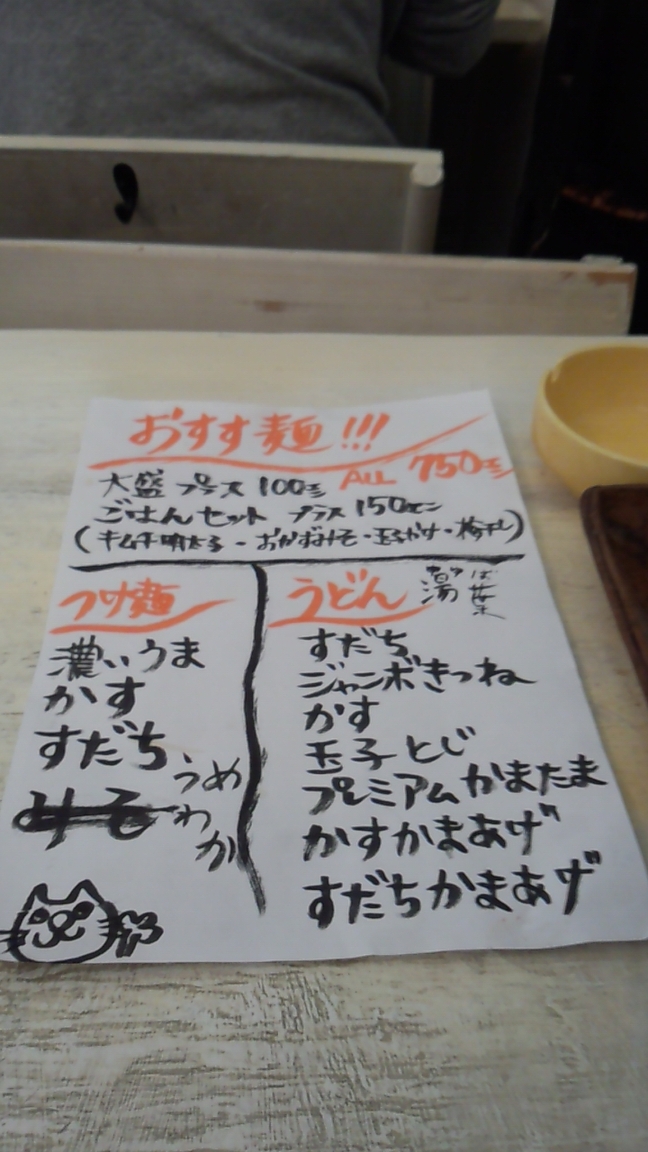 おすす麺!!!
ALL 750円
大盛 プラス 100円
ごはんセット プラス 150エン
(キムチ明太子・おかずみそ・玉子かけ・梅干し)
つけ麺
濃いうま
かす
すだち
みそ
うめ
わか
うどん
湯葉
すだち
ジャンボきつね
かす
玉子とじ
プレミアムかまたま
かすかまあげ
すだちかまあげ